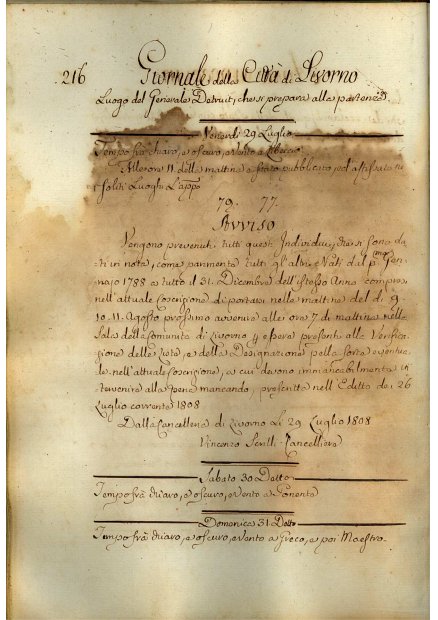 216 Giornale della Città di Livorno
Luogo del Generale Detruit, che si prepara alla partenza.
Venerdì 29 Luglio
Tempo frà chiaro, e oscuro, e vento a Libeccio
Alle ore 11 della mattina è stato pubblicato, ed affissato ne
i soliti Luoghi L'app.o
79. 77.
Avviso
Vengono prevenuti tutti questi Individui, che si sono da
ti in nota, come parimente tutti gli altri Nati dal p.mo Gen
najo 1788 a tutto il 31. Dicembre dell'istesso Anno compresi
nell'attuale Coscrizione di portarsi nelle mattine del dì 9.
10. 11. Agosto prossimo avvenire alle ore 7 di mattina nella
Sala della Comunità di Livorno p essere presenti alla Verifica
zione delle Liste, e della Designazione pella Sorte
nell'attuale Coscrizione, a cui devono immancabilmente in
tervenire alla pena mancando, prescritta nell'Editto de 26
Luglio corrente 1808
Dalla Cancelleria di Livorno Li 29 Luglio 1808
Vincenzo Cancelliere
Sabato 30 Detto
Tempo frà chiaro, e oscuro, e vento a Ponente
Domenica 31 Detto
Tempo frà chiaro, e oscuro, e vento a Greco, e poi Maestro.